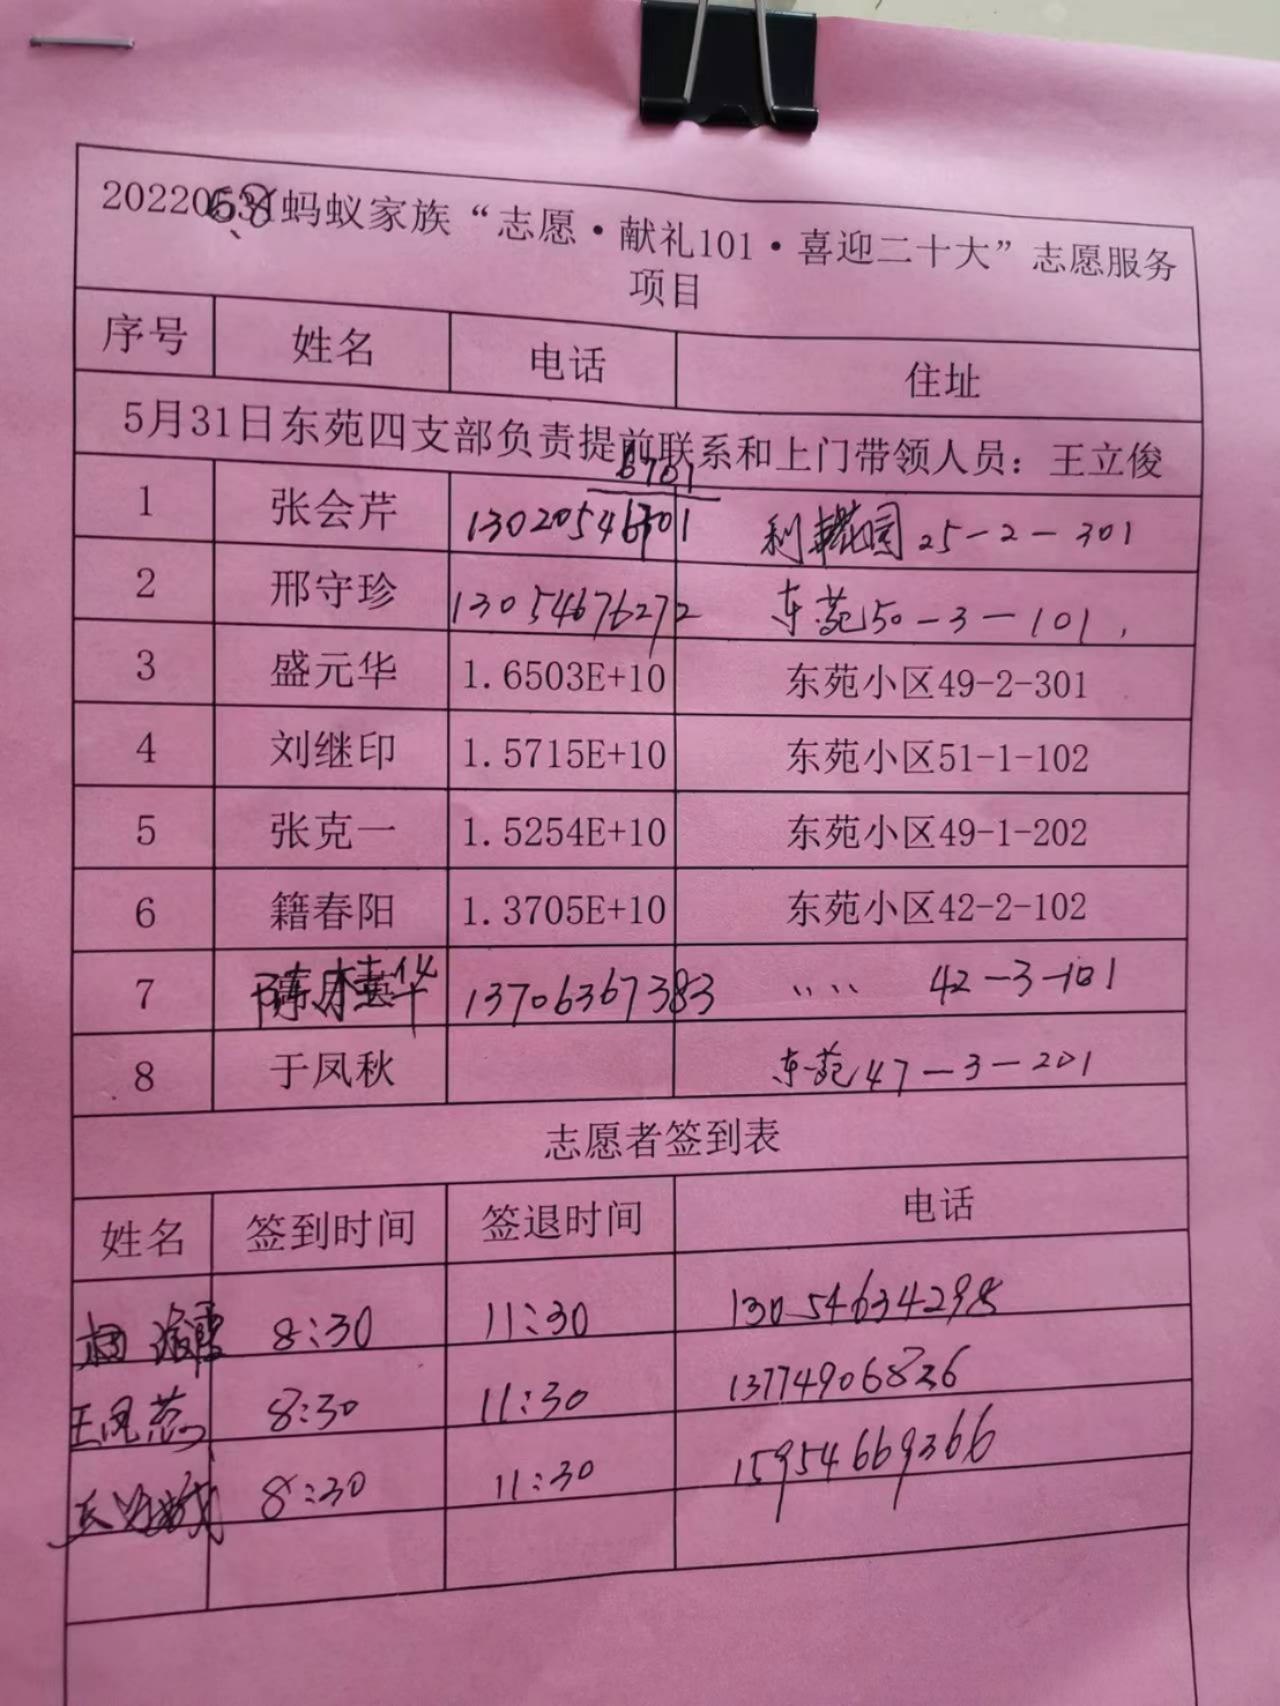 蚂蚁家族“志愿·献礼101·喜迎二十大”志愿服务
项目
序号 姓名 电话 住址
5月31日东苑四支部负责提前联系和上门带领人员：王立俊
6701
1 张会芹 13020546701 25-2-301
2 邢守珍 13054676272 东苑50-3-101
3 盛元华 1.6503E+10 东苑小区49-2-301
4 刘继印 1.5715E+10 东苑小区51-1-102
5 张克一 1.5254E+10 东苑小区49-1-202
6 籍春阳 1.3705E+10 东苑小区42-2-102
7 13706367383 42-3-101
8 于凤秋 东苑47-3-201
志愿者签到表
姓名 签到时间 签退时间 电话
8:30 11:30 13054634298
王凤蕊 8:30 11:30 13774906826
8:30 11:30 15954669366